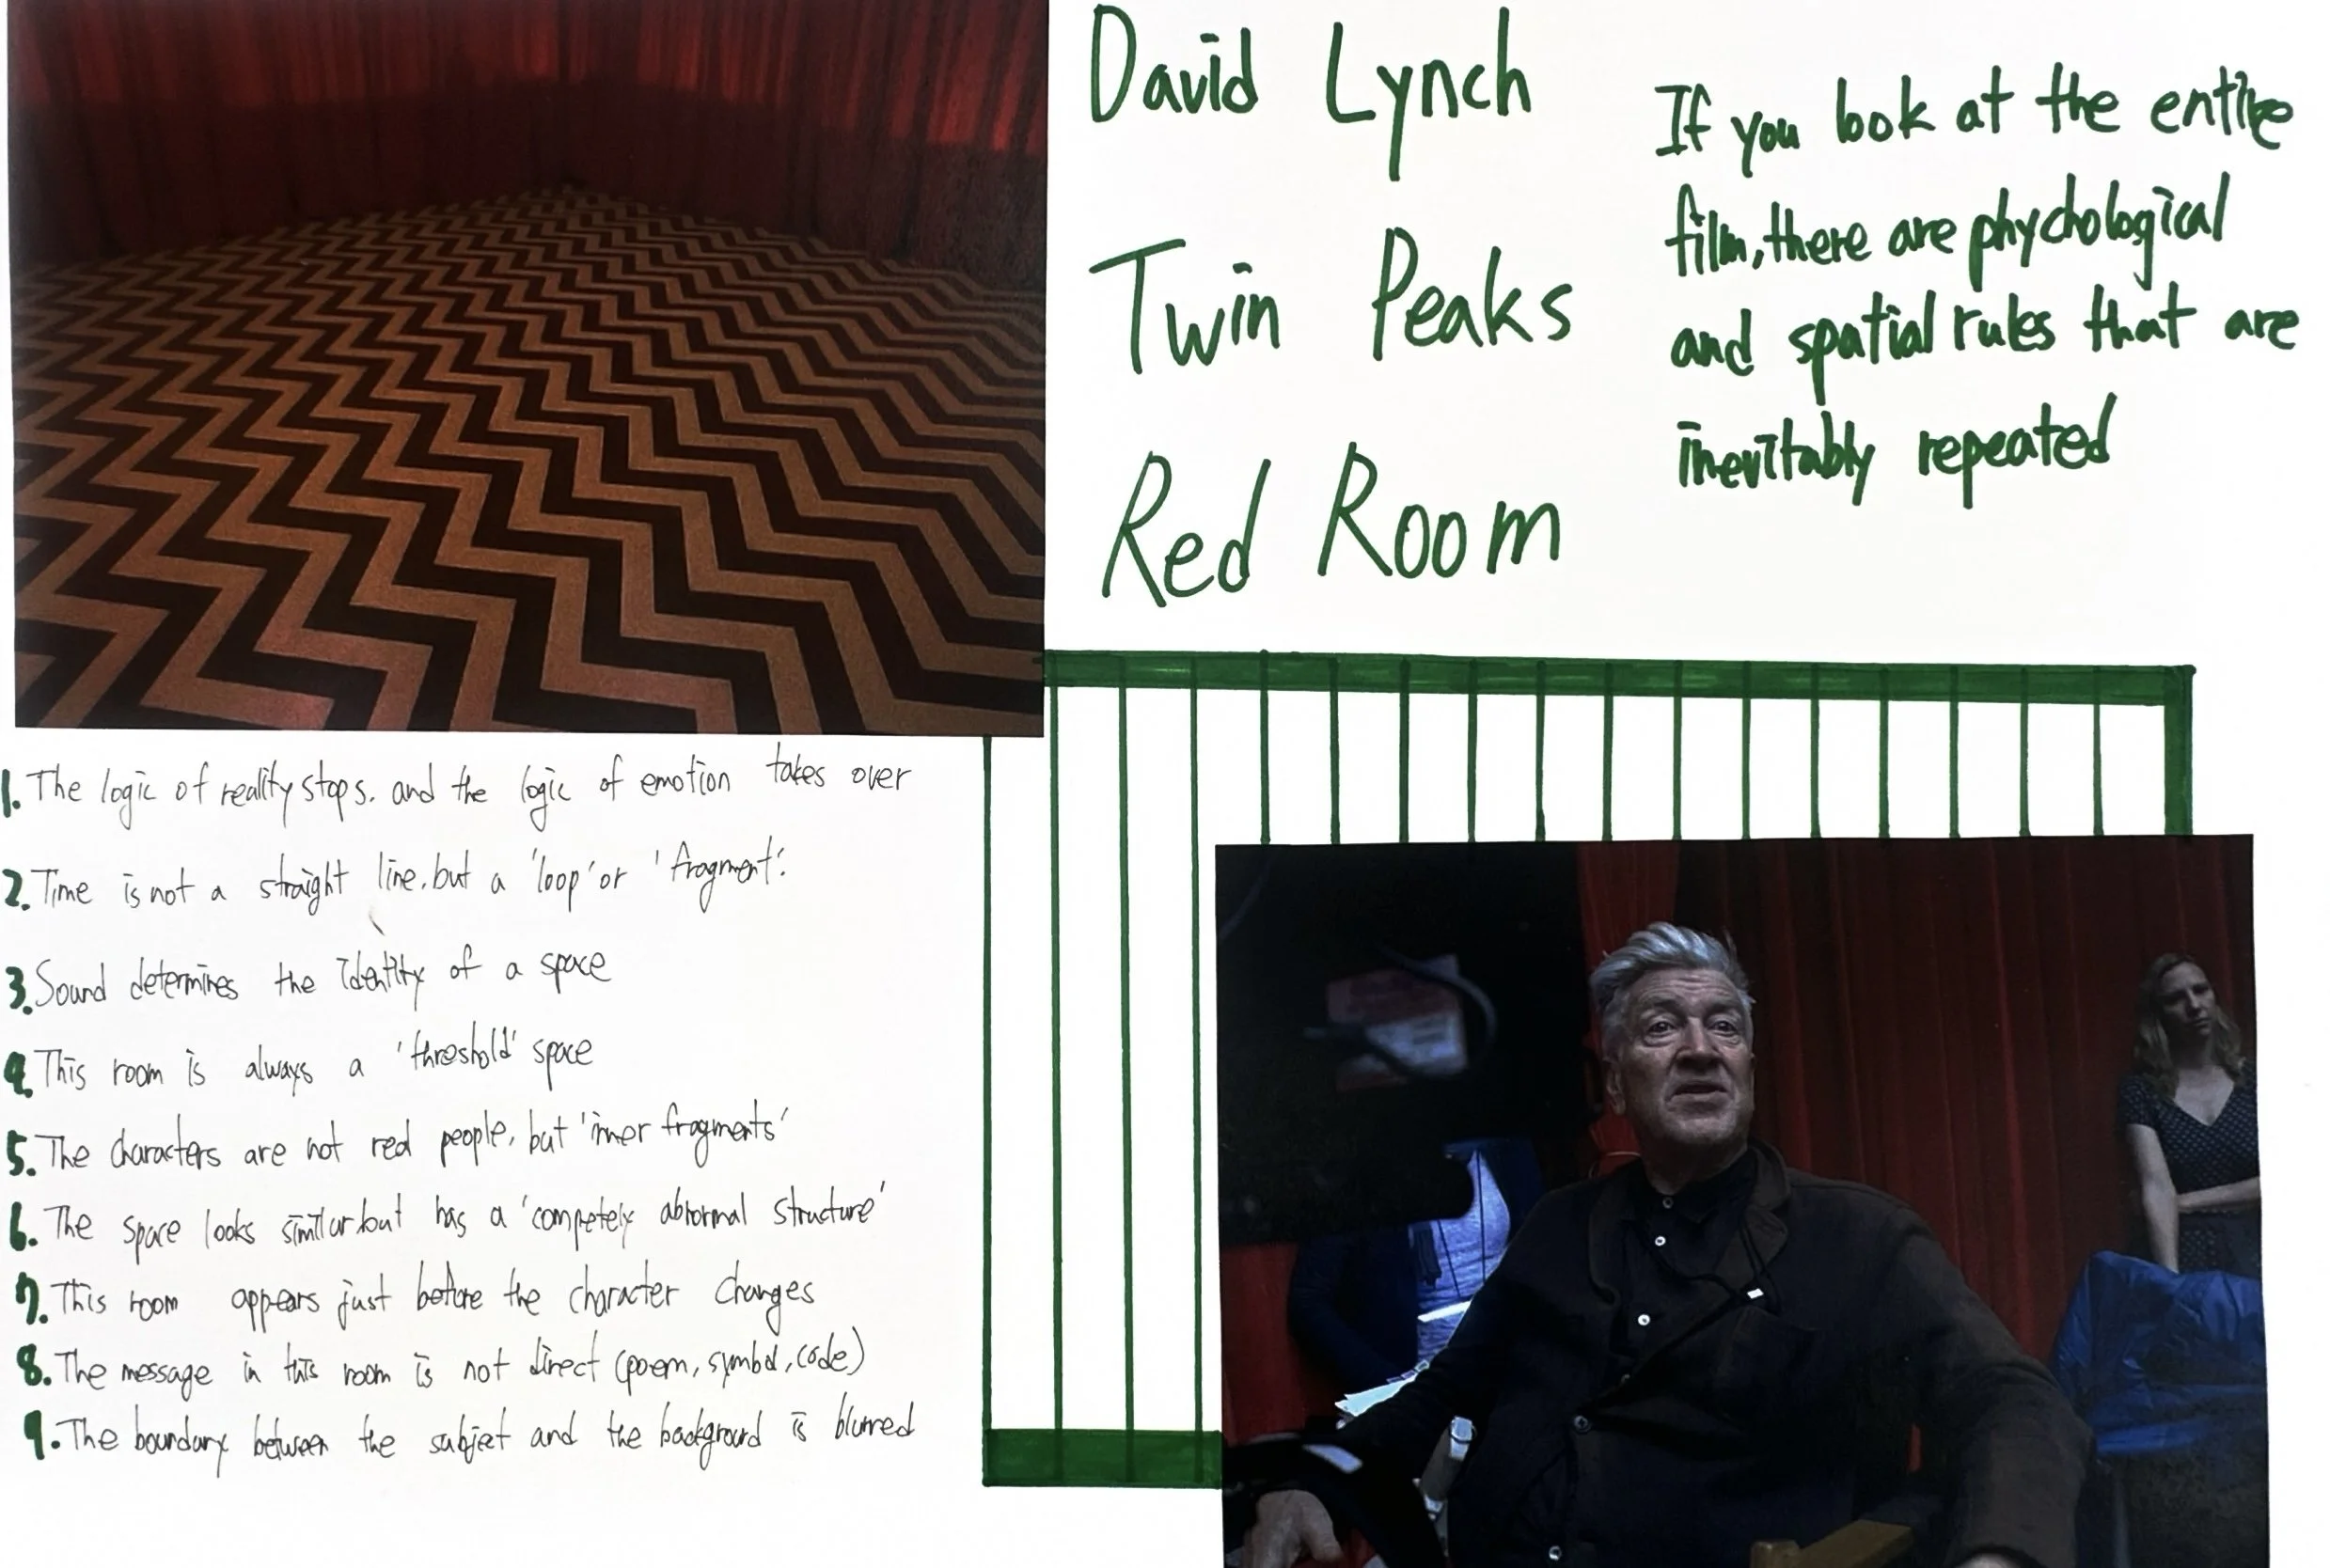 David Lynch
Twin Peaks
Red Room
If you look at the entire
film, there are phychological
and spatial rules that are
inevitably repeated
1. The logic of reality stops. and the logic of emotion takes over
2. Time is not a straight line. but a 'loop' or 'fragment'.
3. Sound determines the identity of a space
4. This room is always a 'threshold' space
5. The characters are not red people, but 'inner fragments'
6. The space looks similar but has a 'competely abnormal structure'
7. This room appears just before the character changes
8. The message in this room is not direct (poem, symbol, code)
9. The boundary between the subject and the background is blurred